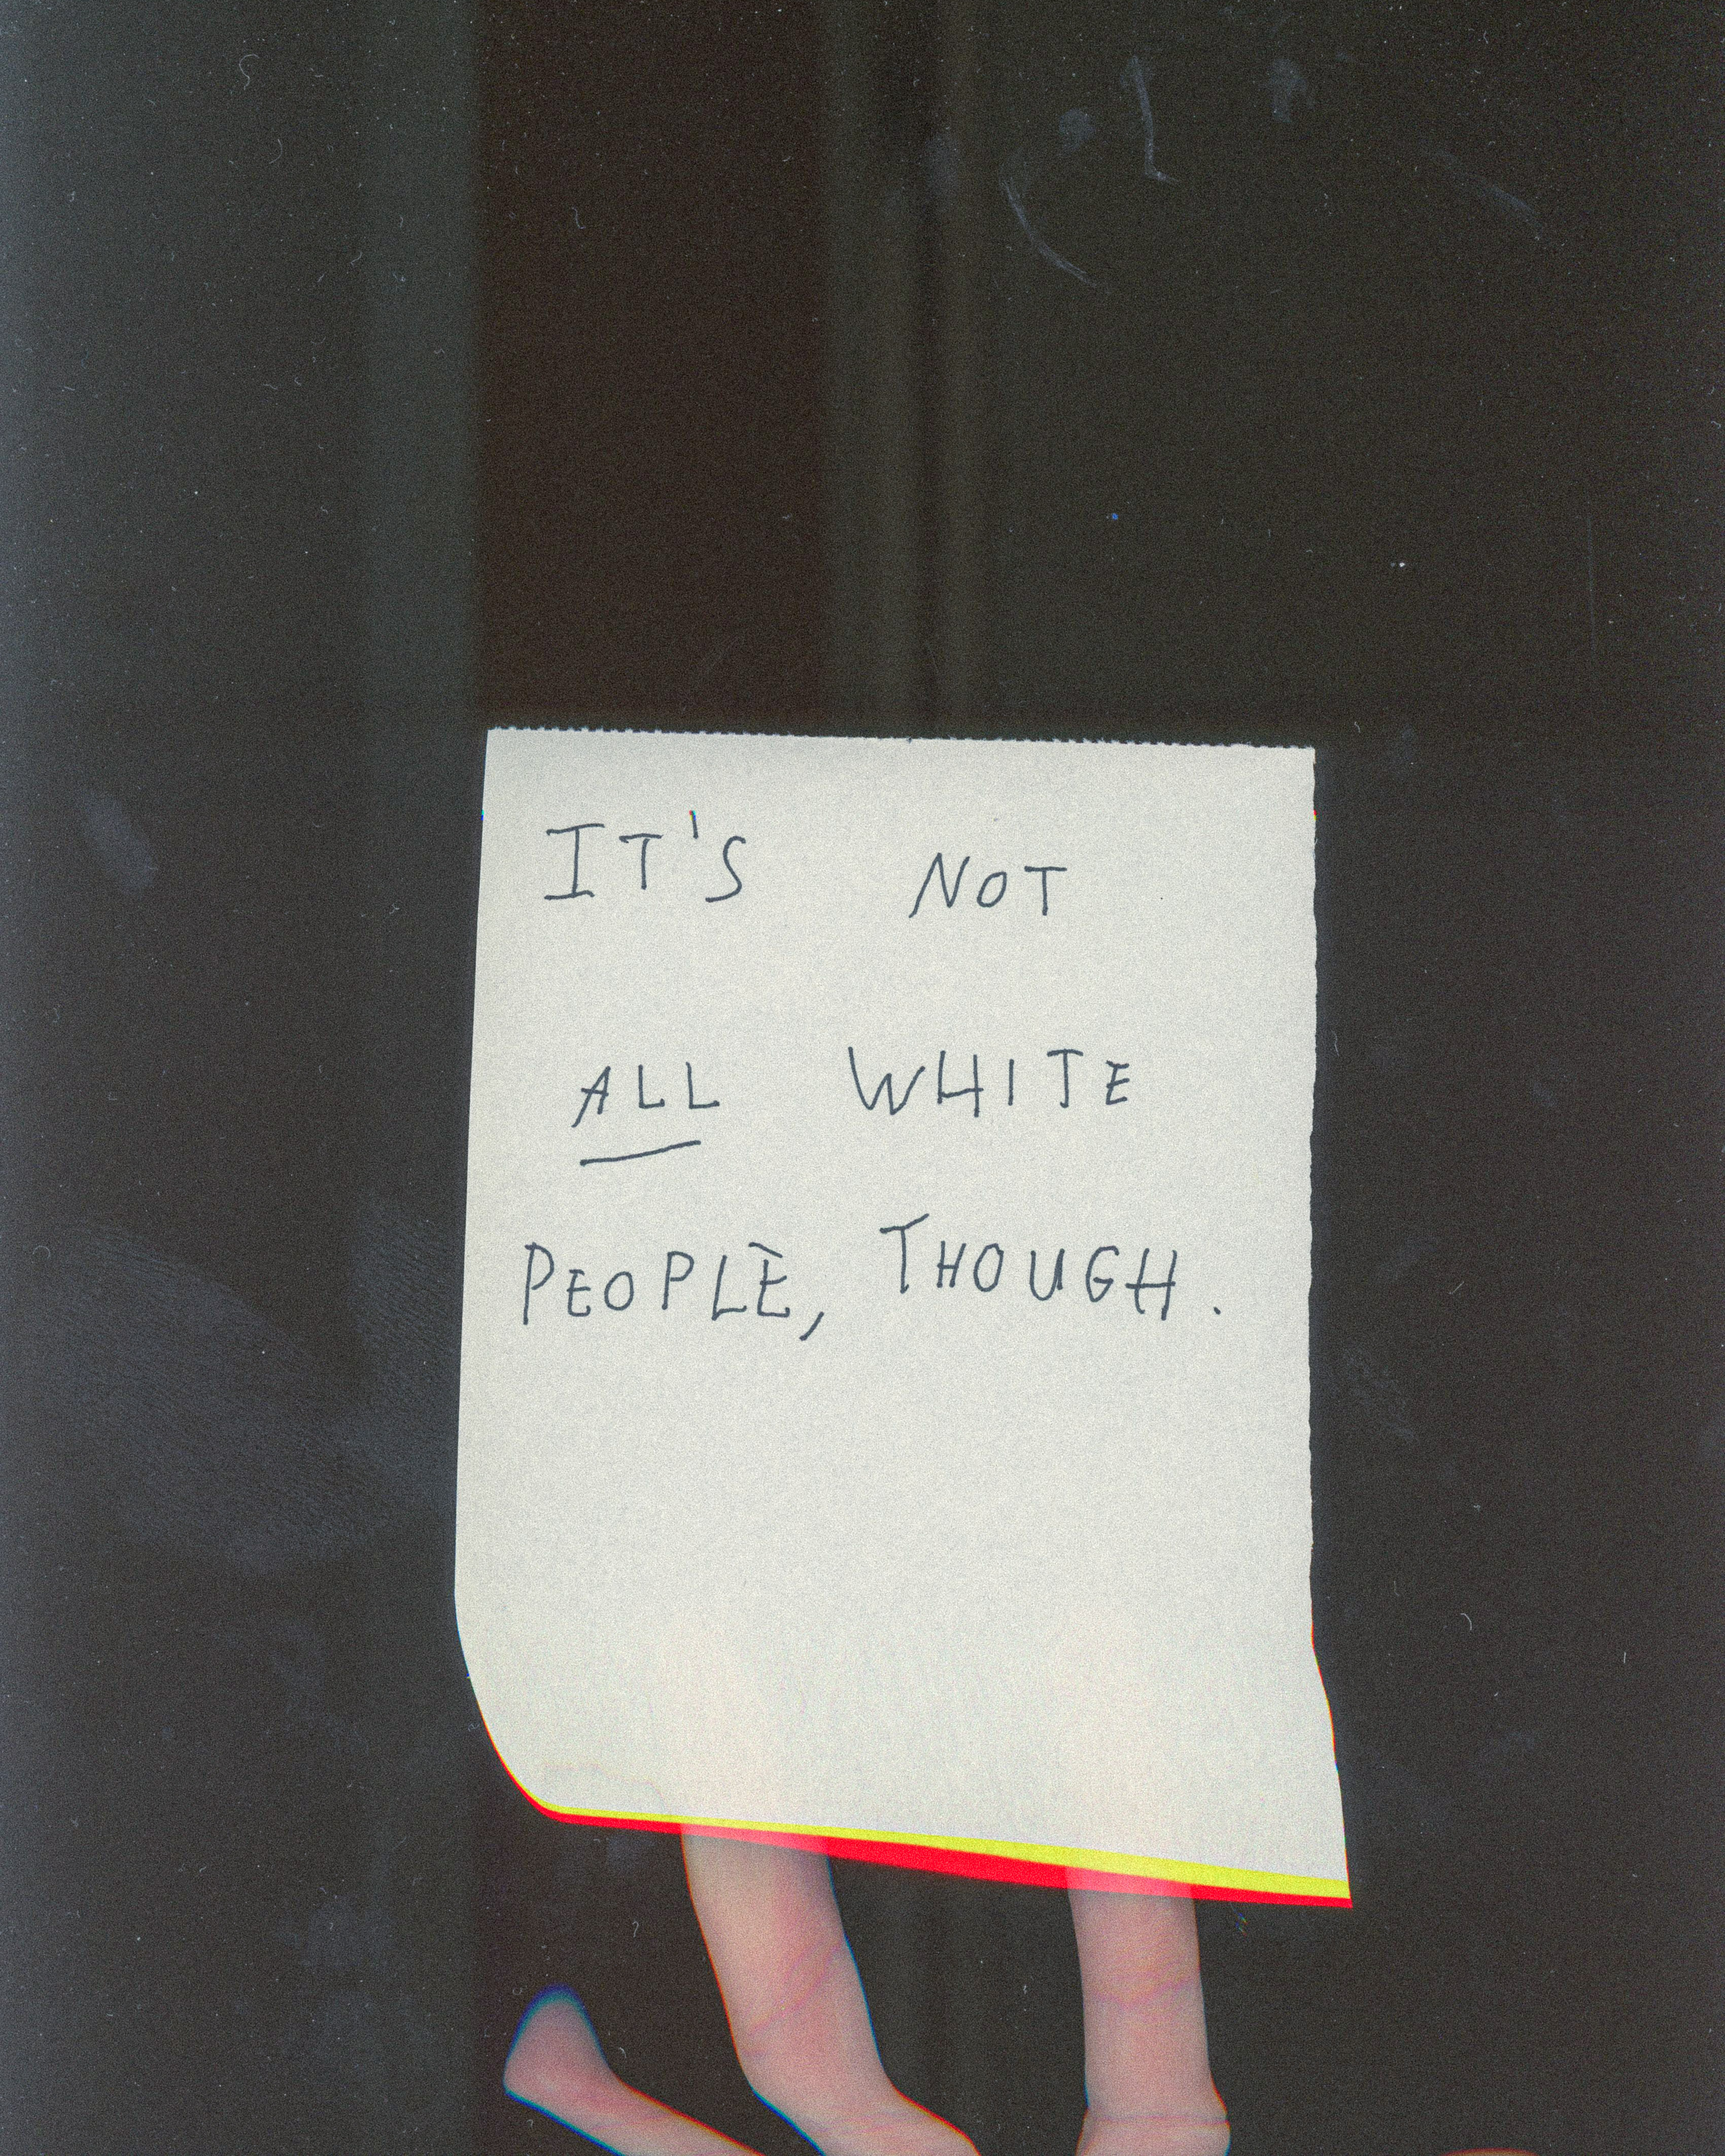 IT'S NOT
ALL WHITE
PEOPLE, THOUGH.